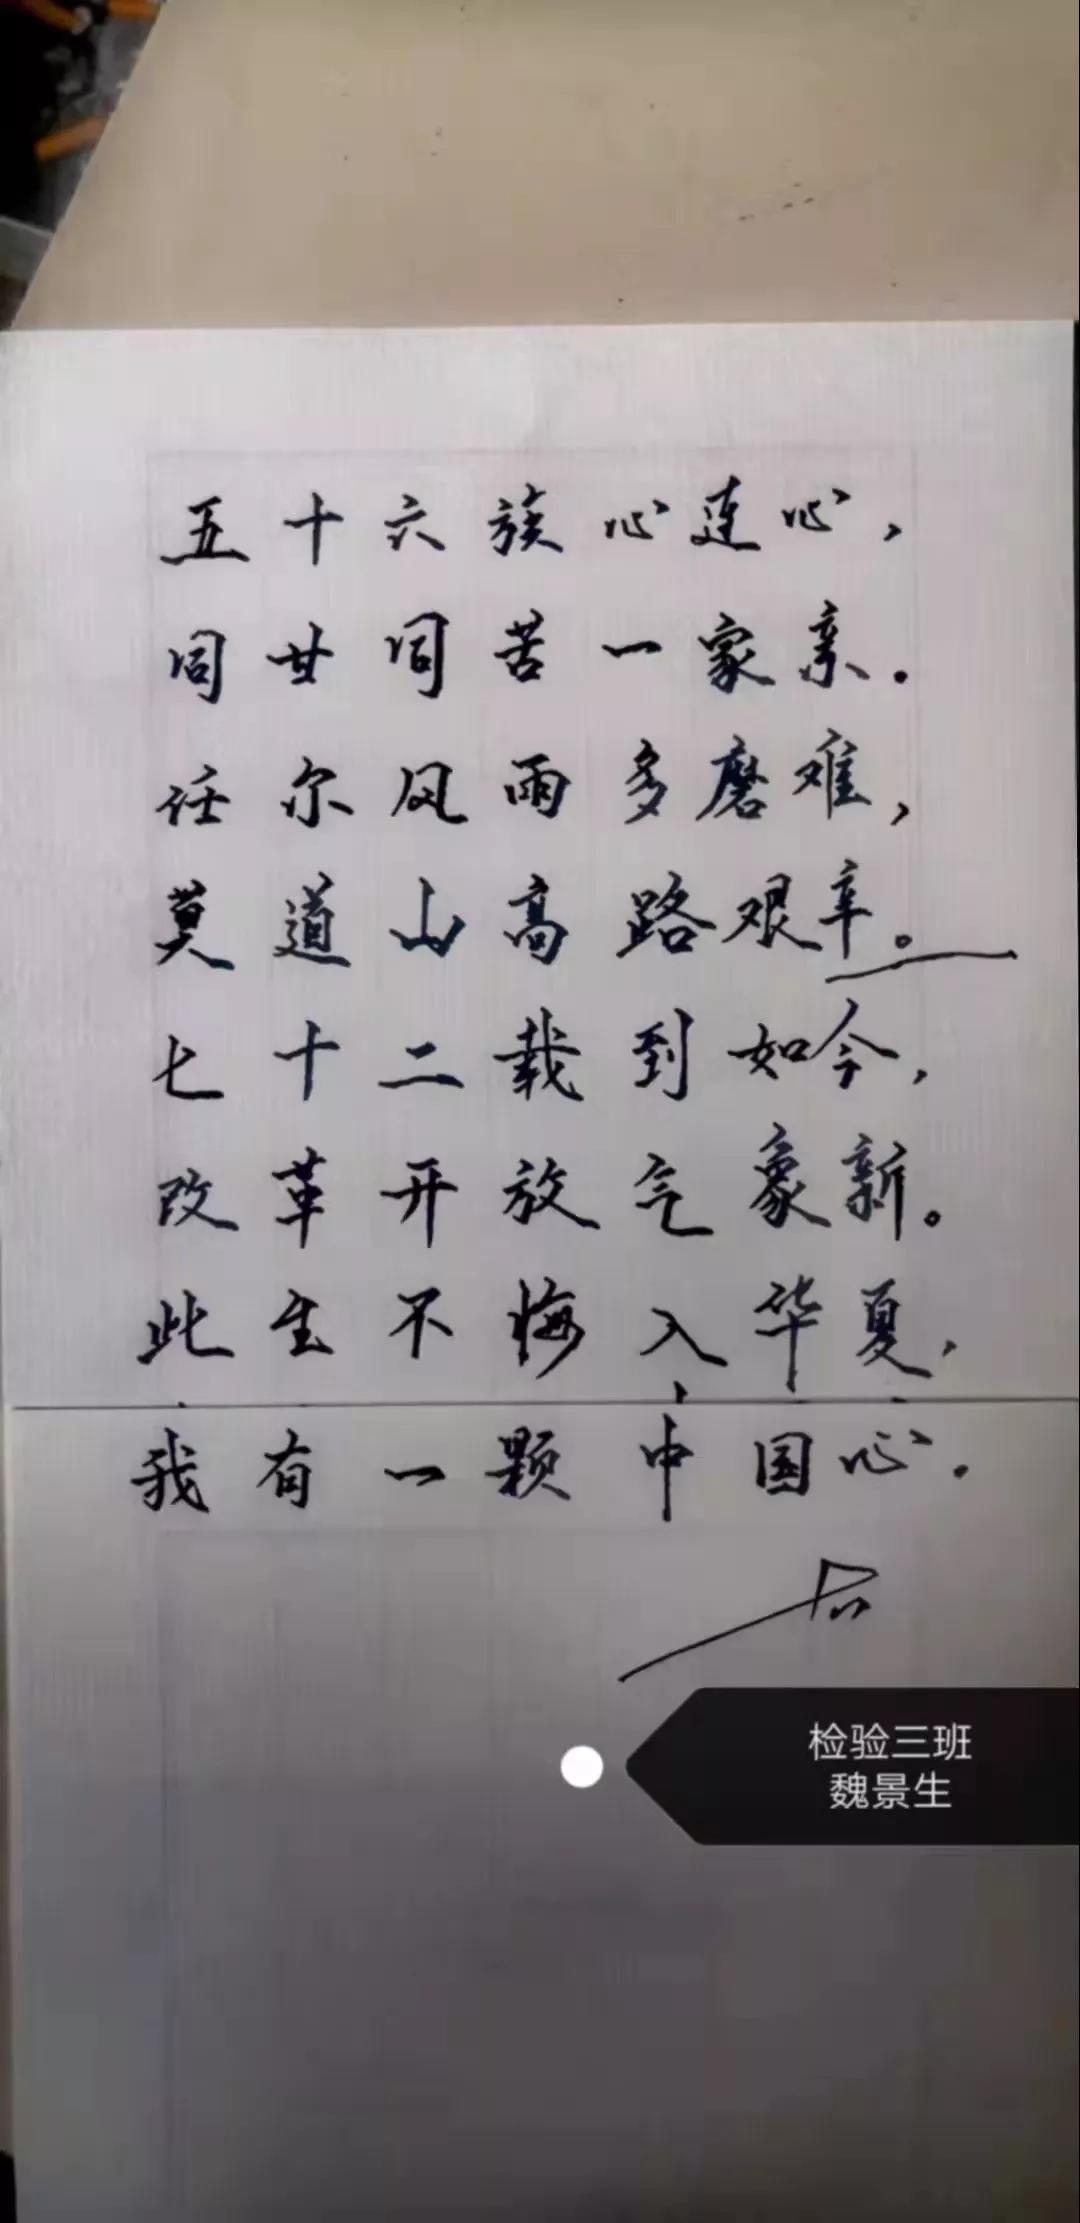 五十六族心连心，
同甘同苦一家亲.
任尔风雨多磨难，
莫道山高路艰辛。
七十二载到如今，
改革开放气象新。
此生不悔入华夏，
我有一颗中国心.
检验三班
魏景生